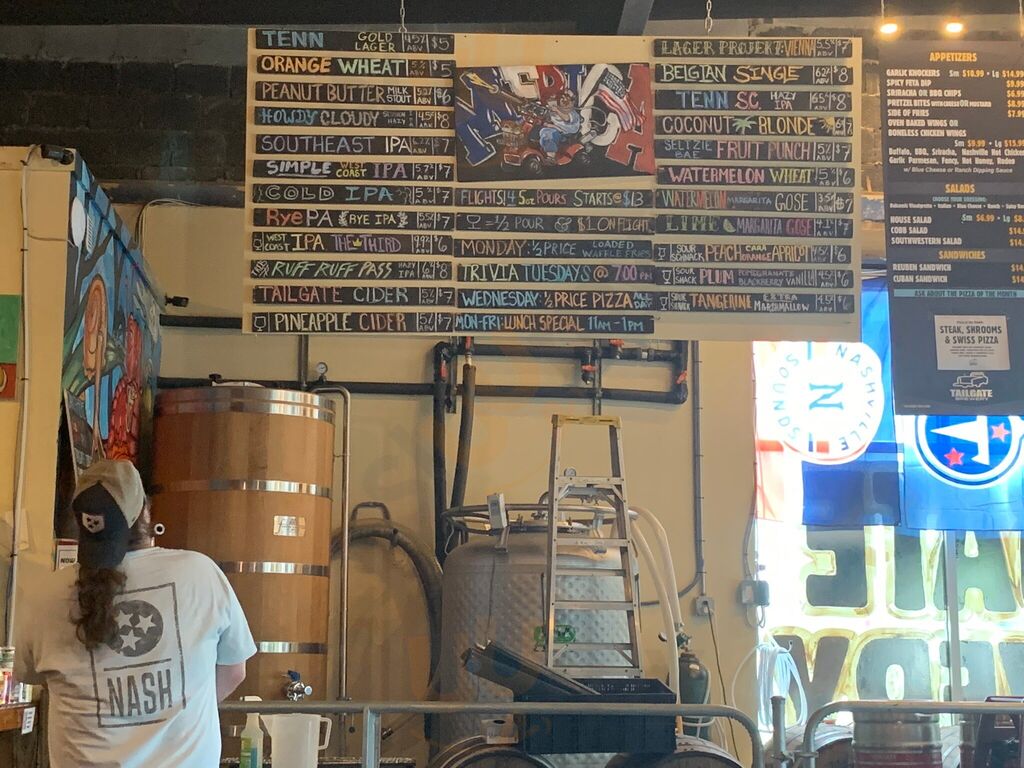 TENN GOLD LAGER 4.5% ABV $5
ORANGE WHEAT 5% ABV $5
PEANUT BUTTER MILK STOUT 5.2% ABV $6
HOWDY CLOUDY HAZY ABV $8
SOUTHEAST IPA ABV $7
SIMPLE WEST COAST IPA ABV $7
COLD IPA ABV $7
RyePA RYE IPA 5.5% ABV $7
WEST COAST IPA THE THIRD 9.9% ABV $6
RUFF RUFF PASS HAZY IPA ABV $8
TAILGATE CIDER 5% ABV $7
PINEAPPLE CIDER 5% ABV $7
AMERICA
FLIGHTS! 4 5oz POURS STARTS @ $13
= 1/2 POUR & $1 ON FLIGHT
MONDAY: 1/2 PRICE LOADED WAFFLE FRIES
TRIVIA TUESDAYS @ 7:00 PM
WEDNESDAY: 1/2 PRICE PIZZA ALL DAY
MON-FRI: LUNCH SPECIAL 11AM-1PM
LAGER PROJEKT: VIENNA 5.5% ABV $7
BELGIAN SINGLE 6.2% ABV $8
TENN SC. HAZY IPA 6.5% ABV $8
COCONUT BLONDE ABV $7
SELTZIE BAE FRUIT PUNCH 5% ABV $7
WATERMELON WHEAT ABV $6
WATERMELON MARGARITA GOSE ABV
LIME MARGARITA GOSE ABV $7
SOUR SHACK PEACH CARA ORANGE APRICOT ABV $6
SOUR SHACK PLUM POMEGRANATE BLACKBERRY VANILLA ABV $6
TANGERINE EXTRA MARSHMALLOW ABV $6
APPETIZERS
GARLIC KNOCKERS Sm $10.99 • Lg $14.9
SPICY FETA DIP $9.9
SRIRACHA OR BBQ CHIPS $6.9
PRETZEL BITES WITH CHEESE OR MUSTARD $8.9
SIDE OF FRIES $7.9
OVEN BAKED WINGS OR
BONELESS CHICKEN WINGS
Sm $9.99 • Lg $15.9
Buffalo, BBQ, Sriracha, Nashville Hot Chicken
Garlic Parmesan, Fancy, Hot Honey, Rodeo
w/ Blue Cheese or Ranch Dipping Sauce
SALADS
CHOOSE YOUR DRESSING:
HOUSE SALAD Sm $6.99 • $8.
COBB SALAD $14.
SOUTHWESTERN SALAD $14.
SANDWICHES
REUBEN SANDWICH $14
CUBAN SANDWICH $14
ASK ABOUT THE PIZZA OF THE MONTH
STEAK, SHROOMS
& SWISS PIZZA
TAILGATE
BREWERY
NASHVILLE
SOUNDS
N
NOW
NASH